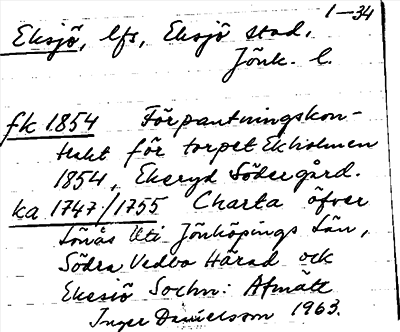 1-34
Eksjö, lfs, Eksjö stad,
Jönk. l.
fk 1854 Förpantningskon-
trakt för torpet Ekholmen
1854, Ekeryd Södergård.
ka 1747/1755 Charta öfver
Sönås Uti Jönköpings Län,
Södra Vedbo Härad och
Ekesiö Sochn: Afmätt
Inger Danielsson 1963.